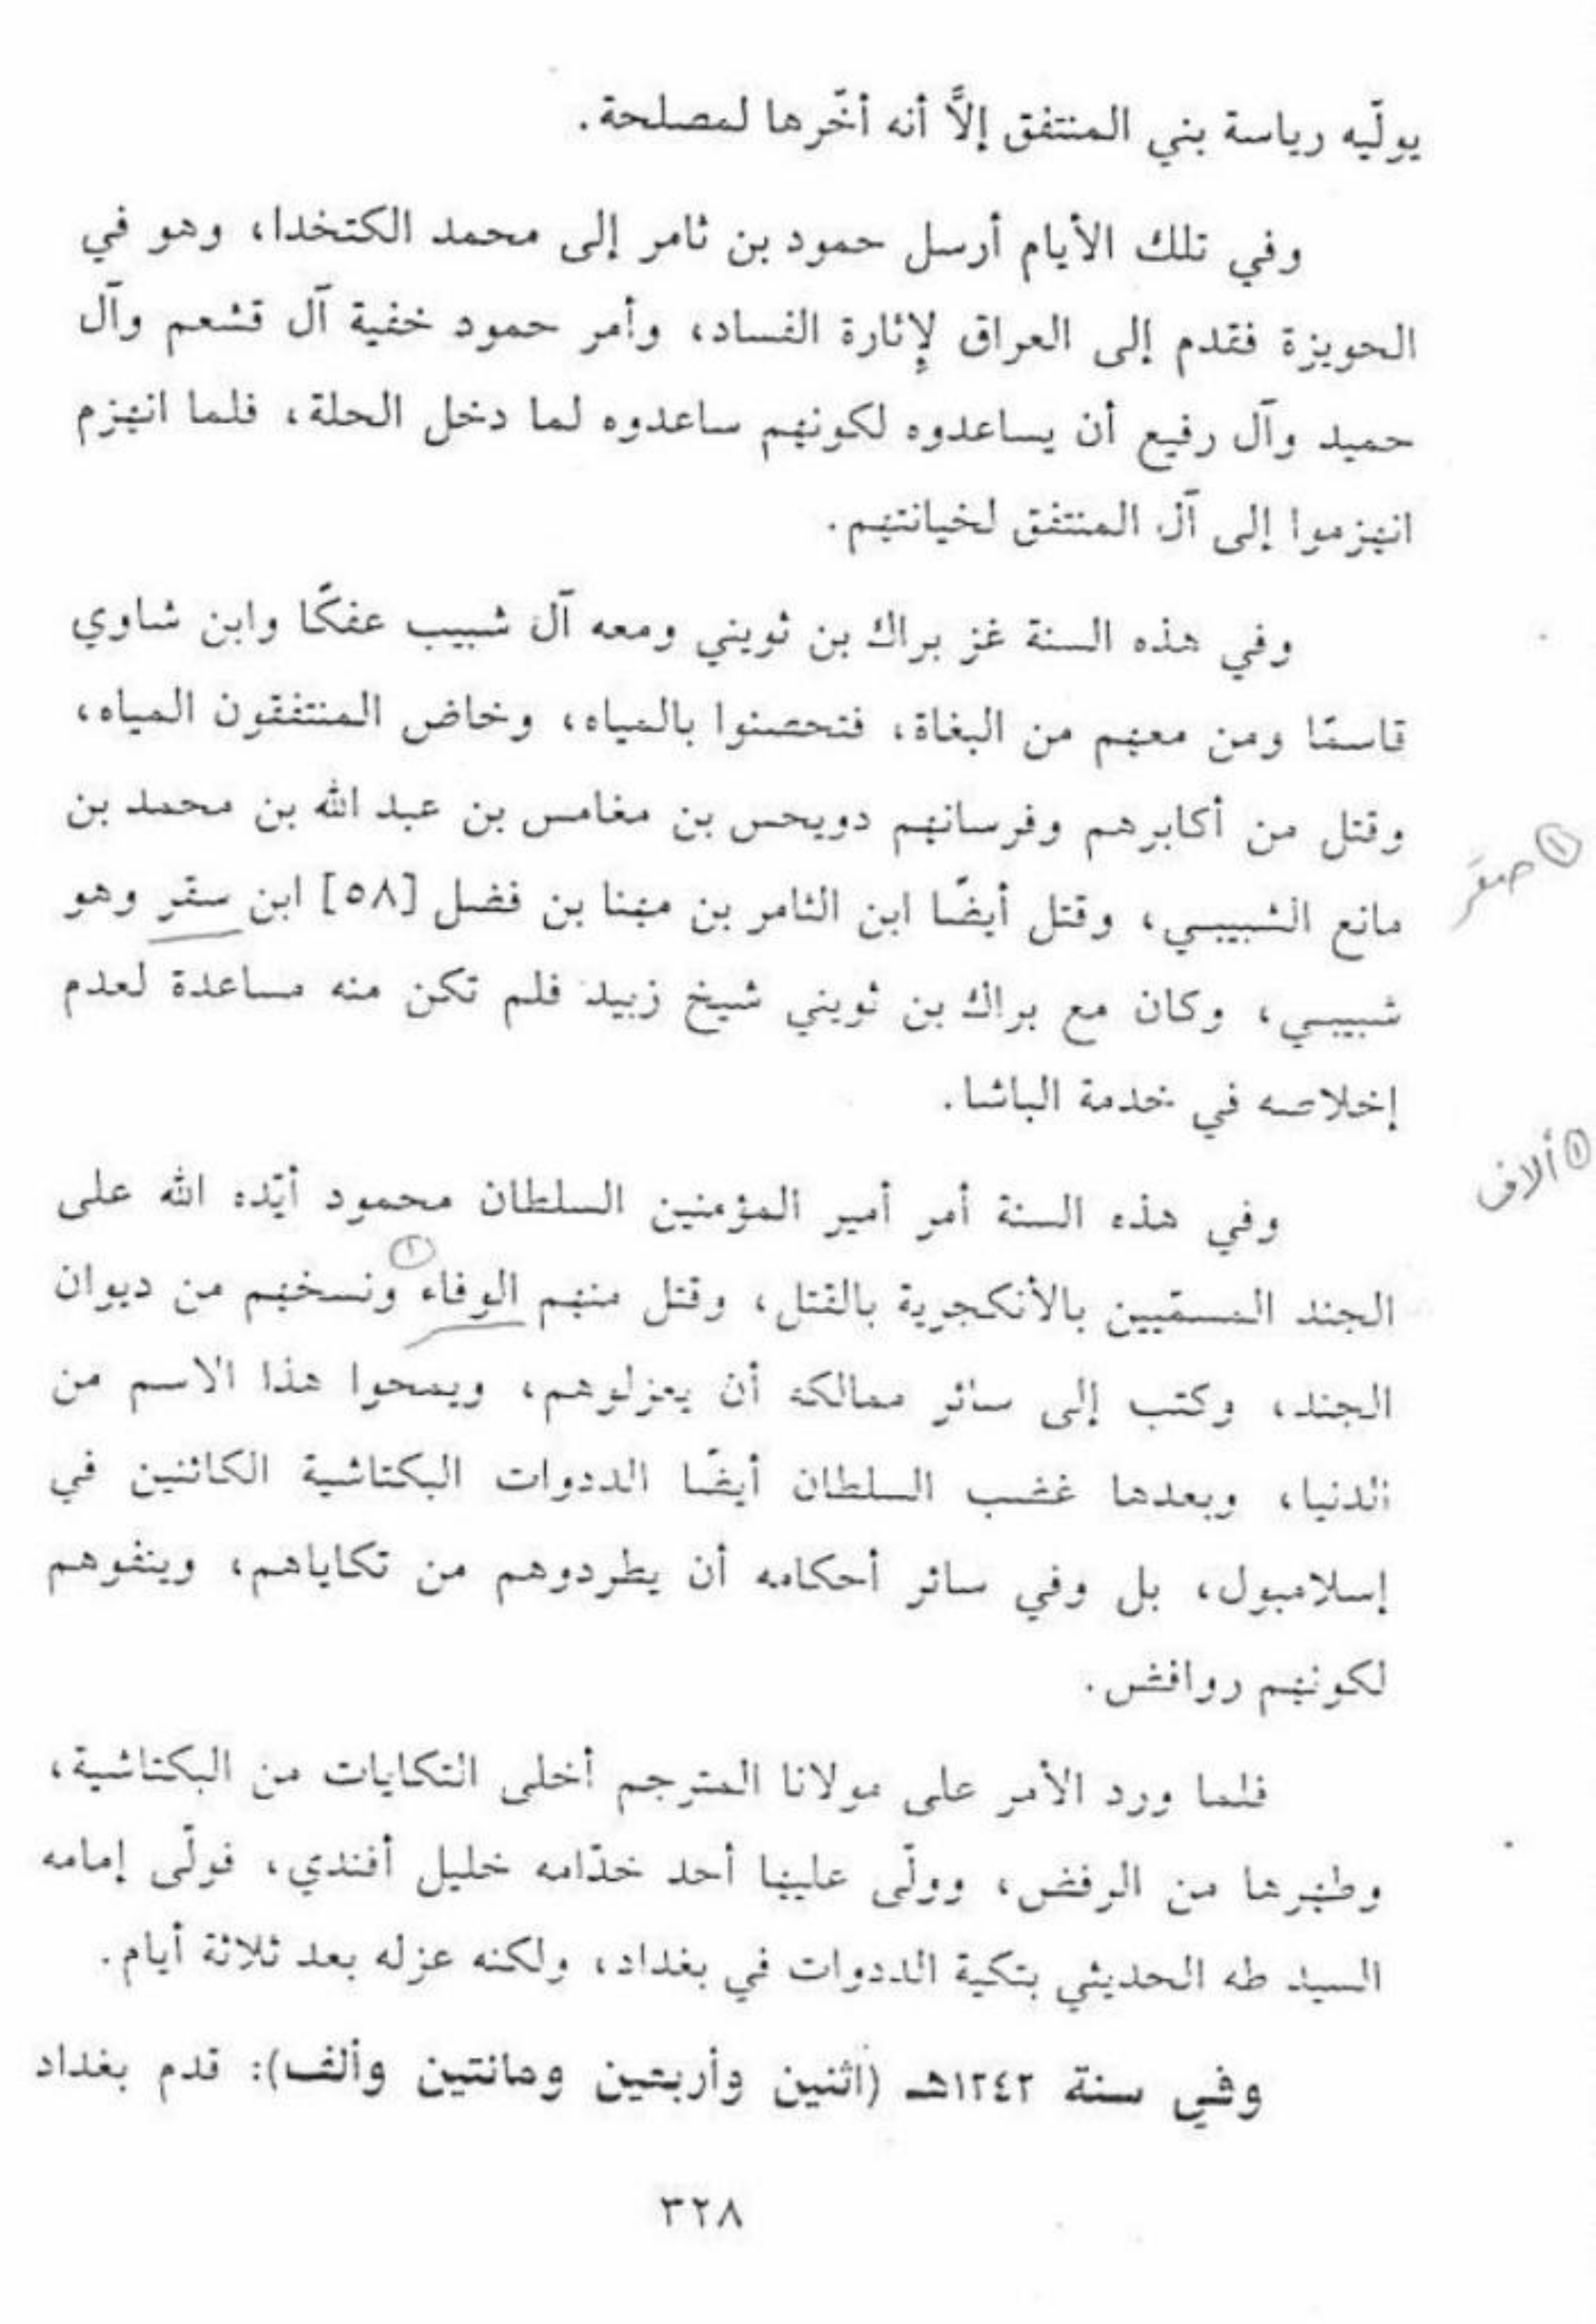 يولّيه رياسة بني المنتفق إلاَّ أنه أخّرها لمصلحة.
وفي تلك الأيام أرسل حمود بن ثامر إلى محمد الكتخدا، وهو في
الحويزة فقدم إلى العراق لإثارة الفساد، وأمر حمود خفية آل قشعم وآل
حميد وآل رفيع أن يساعدوه لكونهم ساعدوه لما دخل الحلة، فلما انهزم
انهزموا إلى آل المنتفق لخيانتهم.
وفي هذه السنة غز براك بن ثويني ومعه آل شبيب عفكًا وابن شاوي
قاسمًا ومن معهم من البغاة، فتحصنوا بالمياه، وخاض المنتفقون المياه،
وقتل من أكابرهم وفرسانهم دويحس بن مغامس بن عبد الله بن محمد بن
① صقر
مانع الشبيبي، وقتل أيضًا ابن الثامر بن مهنا بن فضل [٥٨] ابن سقر وهو
شبيبي، وكان مع براك بن ثويني شيخ زبيد فلم تكن منه مساعدة لعدم
إخلاصه في خدمة الباشا.
① ألاف
وفي هذه السنة أمر أمير المؤمنين السلطان محمود أيّده الله على
الجند المسمّيين بالأنكجرية بالقتل، وقتل منهم الوفاء ① ونسخهم من ديوان
الجند، وكتب إلى سائر ممالكه أن يعزلوهم، ويمحوا هذا الاسم من
الدنيا، وبعدها غضب السلطان أيضًا الددوات البكتاشية الكائنين في
إسلامبول، بل وفي سائر أحكامه أن يطردوهم من تكاياهم، وينفوهم
لكونهم روافض.
فلما ورد الأمر على مولانا المترجم أخلى التكايات من البكتاشية،
وطهرها من الرفض، وولّى عليها أحد خدّامه خليل أفندي، فولّى إمامه
السيد طه الحديثي بتكية الددوات في بغداد، ولكنه عزله بعد ثلاثة أيام.
وفي سنة ١٢٤٢هـ (اثنين وأربعين ومائتين وألف): قدم بغداد
٣٢٨